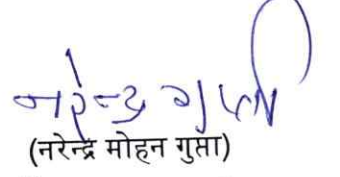 नरेन्द्र गुप्ता
(नरेन्द्र मोहन गुप्ता)